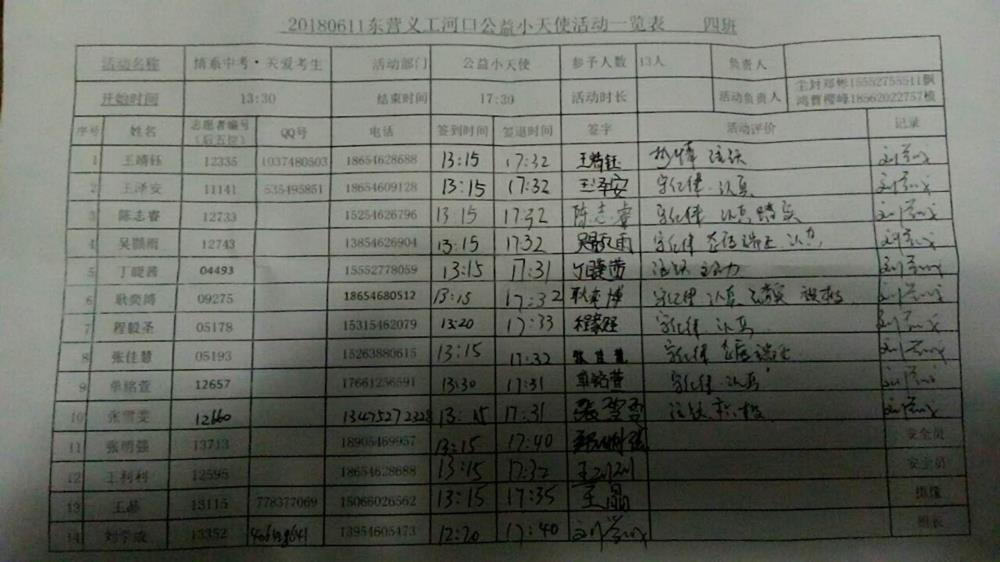 20180611东营义工河口公益小天使活动一览表 四班
活动名称 情系中考·关爱考生 活动部门 公益小天使 参予人数 13人 负责人
开始时间 13:30 结束时间 17:30 活动时长 活动负责人 尘封郑彬15552755511飘
鸿曹樱峰18562022757梭
序号 姓名 志愿者编号(后五位) QQ号 电话 签到时间 签退时间 签字 活动评价 记录
1 王靖钰 12335 1037480503 18654628688 13:15 17:32 王靖钰 活跃
2 王泽安 11141 535495851 18654609128 13:15 17:32 王泽安 守纪律 认真
3 陈志睿 12733 15254626796 13:15 17:32 陈志睿 守纪律 认真踏实
4 吴颢雨 12743 13854626904 13:15 17:32 吴颢雨 守纪律 态度端正
5 丁暖茜 04493 15552778059 13:15 17:31
6 耿奕博 09275 18654680512 13:15 17:32 耿奕博 守纪律 认真 积极
7 程毅圣 05178 15315462079 13:20 17:33 程毅圣 守纪律 认真
8 张佳慧 05193 15263880615 13:15 17:32 张佳慧 守纪律 态度端正
9 单铭萱 12657 17661256591 13:30 17:31 单铭萱 守纪律 认真
10 张雪雯 12660 13475272328 13:15 17:31 张雪雯 活跃 积极
11 张明强 13713 18905469957 13:15 17:40 安全员
12 王利利 12595 18654628688 13:15 17:32 王利利 安全员
13 王晶 13115 778377069 15066026562 13:15 17:35 王晶 摄像
14 刘学成 13352 13954605473 12:20 17:40 刘学成 班长